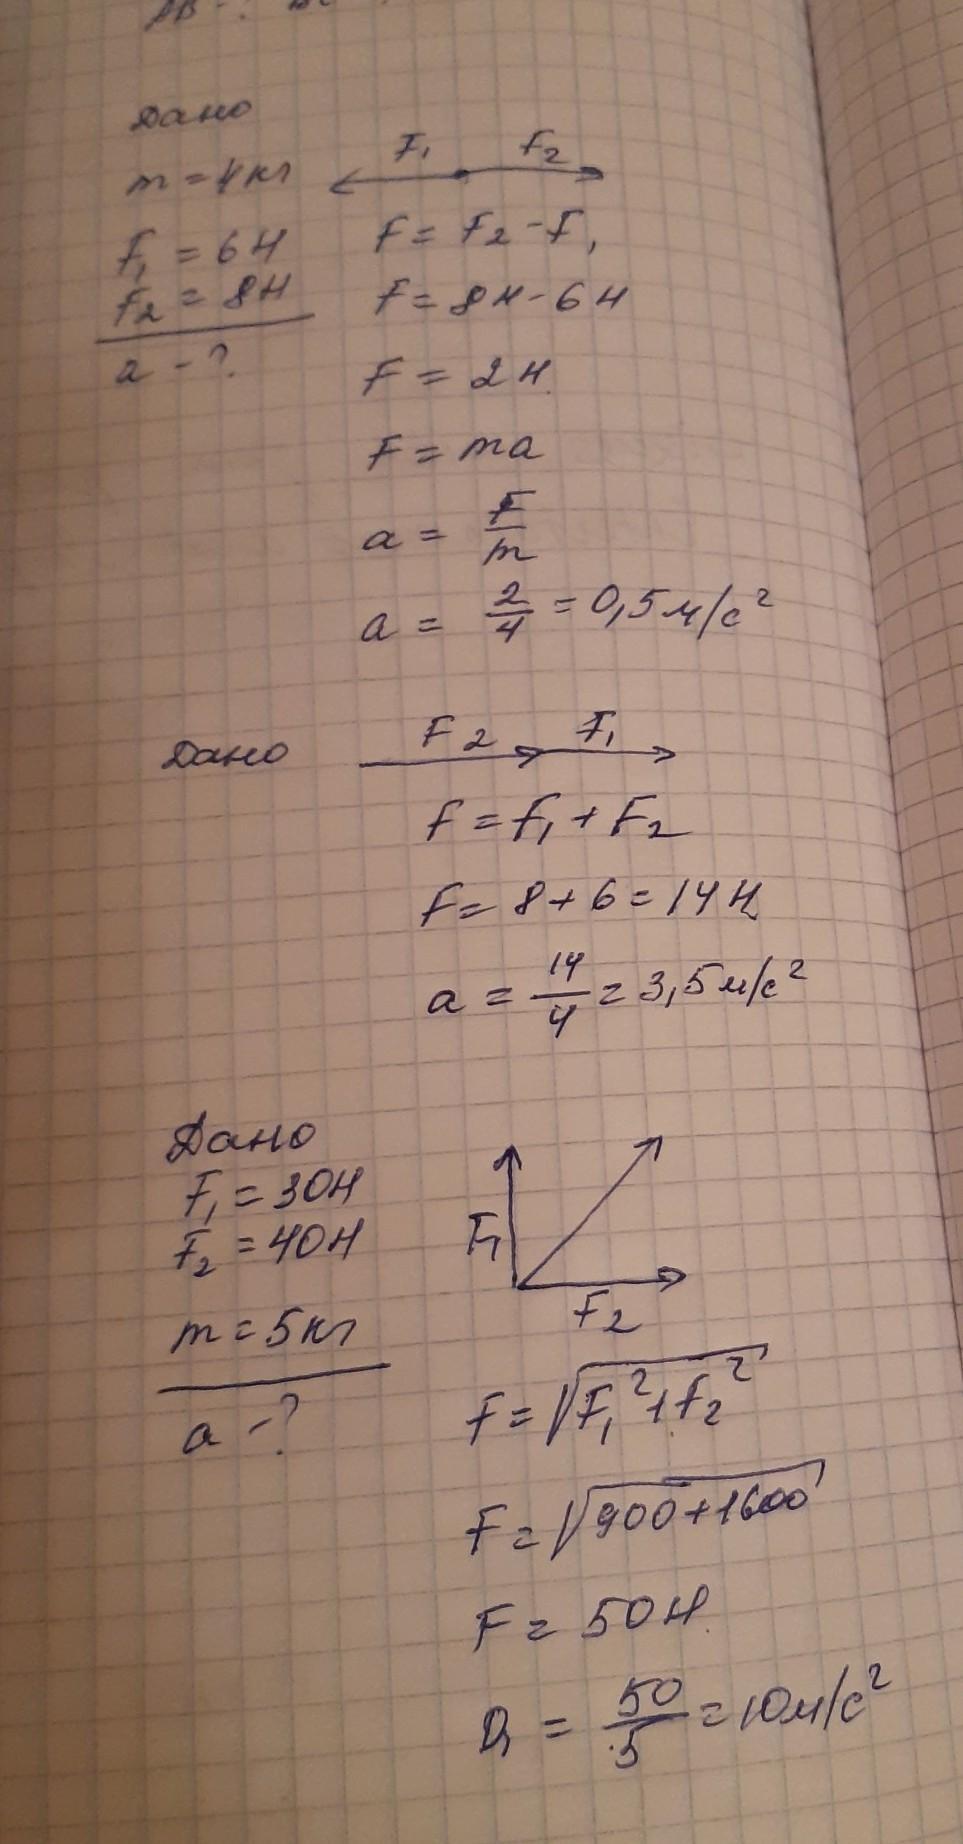 Дано
m = 4кг
F₁ F₂
F₁ = 6Н
F₂ = 8Н
a - ?
F = F₂ - F₁
F = 8Н - 6Н
F = 2Н
F = ma
a = F/m
a = 2/4 = 0,5м/с²
Дано
F₂ F₁
F = F₁ + F₂
F = 8 + 6 = 14Н
a = 14/4 = 3,5м/с²
Дано
F₁ = 30Н
F₂ = 40Н
m = 5кг
a - ?
F₁
F₂
F = √(F₁² + F₂²)
F = √(900 + 1600)
F = 50Н
a = 50/5 = 10м/с²